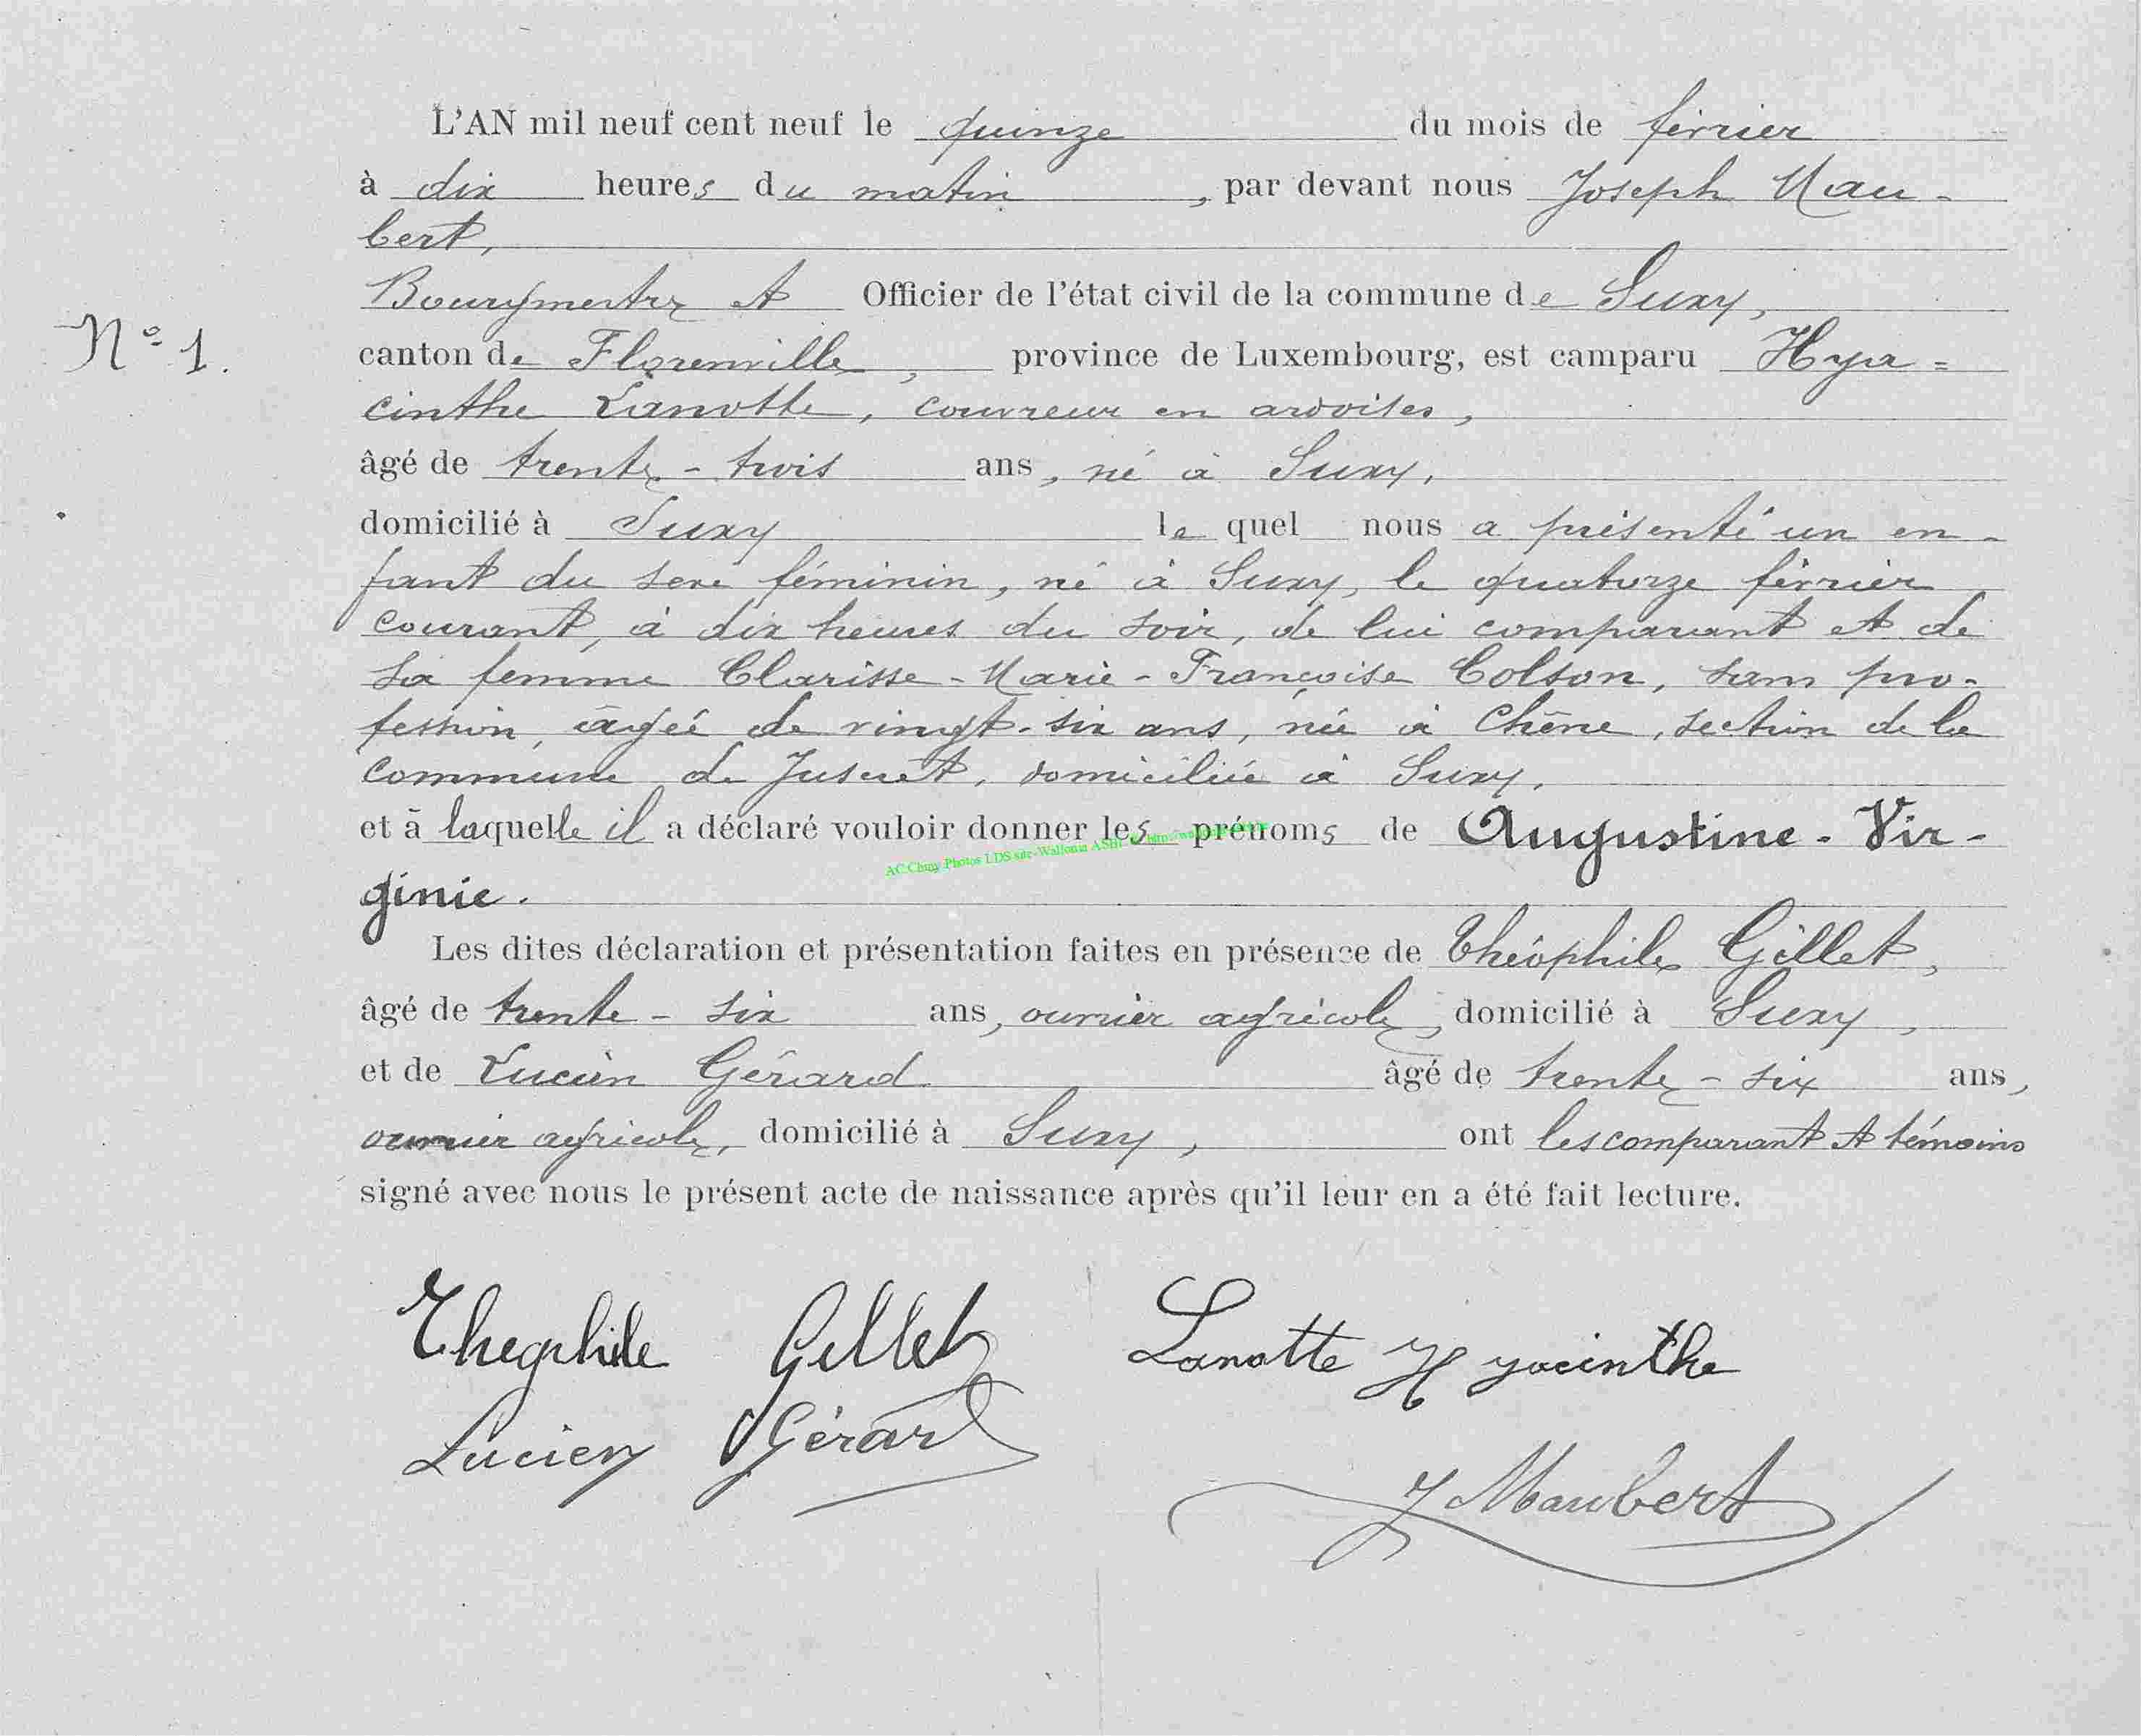 L'AN mil neuf cent neuf le quinze du mois de février
à dix heures du matin, par devant nous Joseph Mau-
bert,
Bourgmestre et Officier de l'état civil de la commune de Suxy,
N° 1.
canton de Florenville, province de Luxembourg, est camparu Hya=
cinthe Lanotte, couvreur en ardoises,
âgé de trente-trois ans, né à Suxy,
domicilié à Suxy lequel nous a présenté un en-
fant du sexe féminin, né à Suxy, le quatorze février
courant, à dix heures du soir, de lui comparant et de
sa femme Clarisse-Marie-Françoise Colson, sans pro-
fession, âgée de vingt-six ans, née à Chêne, section de la
commune de Juseret, domiciliée à Suxy,
et à laquelle il a déclaré vouloir donner les prénoms de Augustine-Vir-
AC Chiny Photos LDS site-Wallonia ASBL
ginie.
Les dites déclaration et présentation faites en présence de Théophile Gillet,
âgé de trente-six ans, ouvrier agricole, domicilié à Suxy,
et de Lucien Gérard âgé de trente-six ans,
ouvrier agricole, domicilié à Suxy, ont les comparant et témoins
signé avec nous le présent acte de naissance après qu'il leur en a été fait lecture.
Theophile Gillet Lanotte Hyacinthe
Lucien Gérard
J Maubert